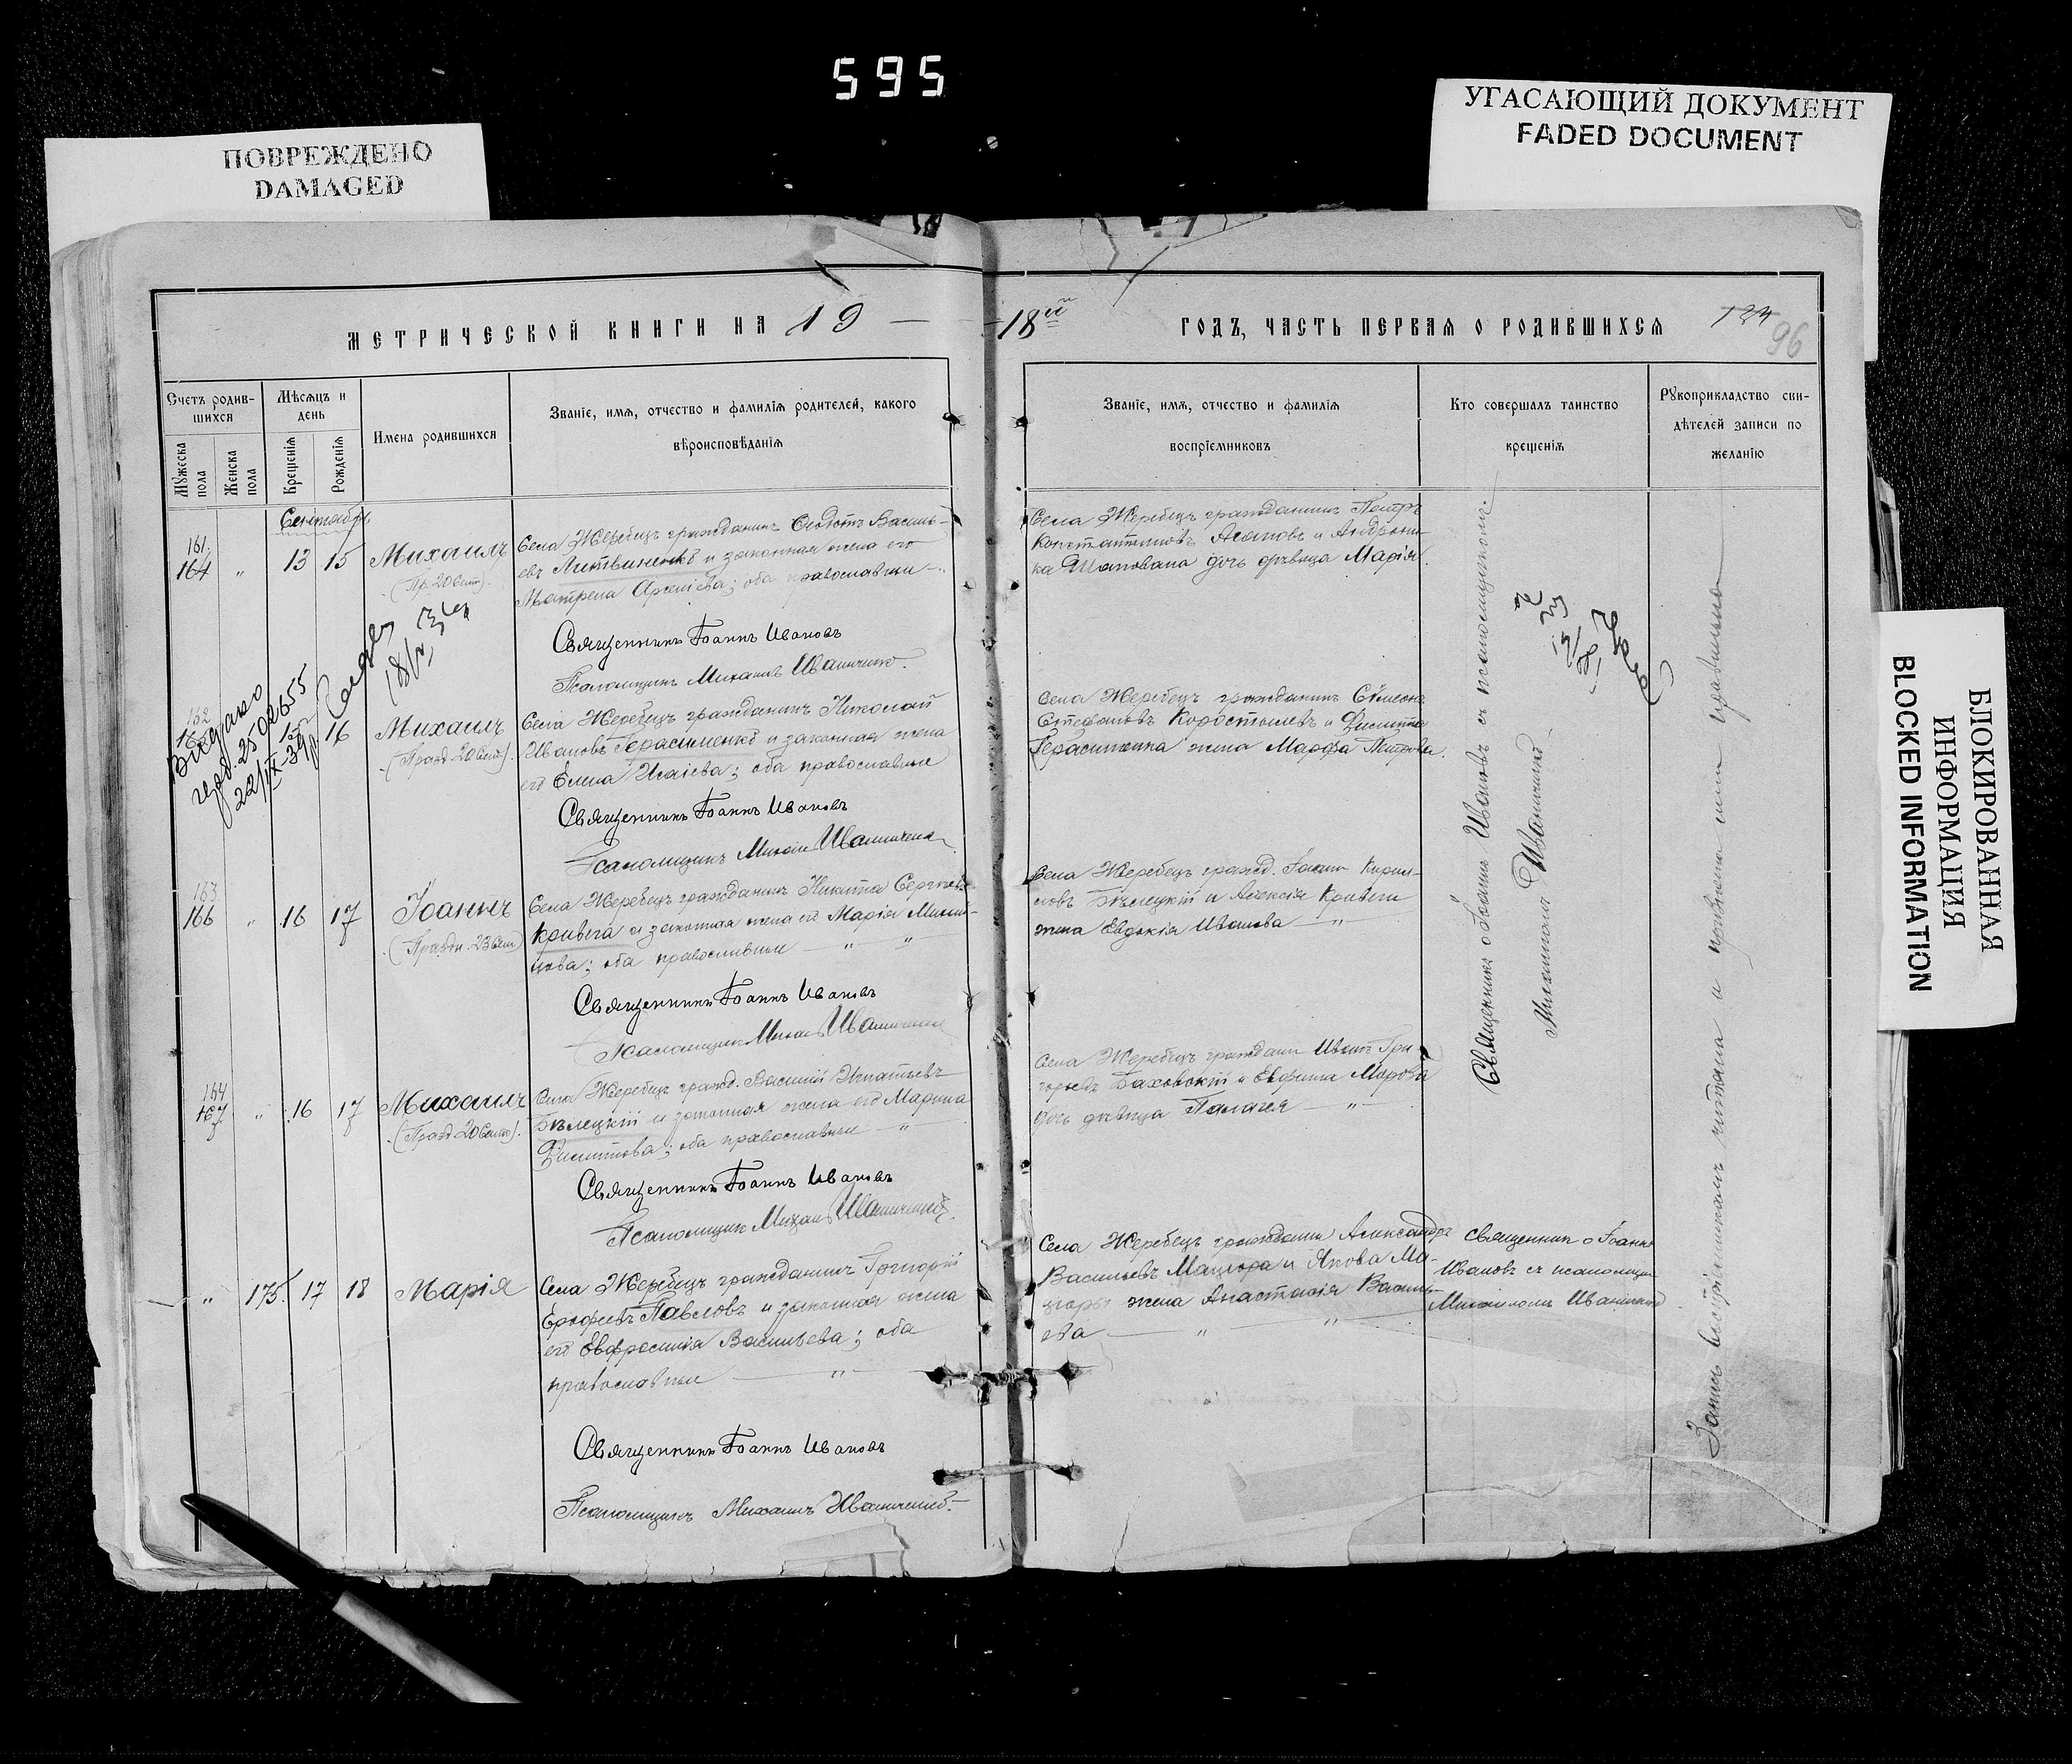 595
ПОВРЕЖДЕНО
DAMAGED
УГАСАЮЩИЙ ДОКУМЕНТ
FADED DOCUMENT
БЛОКИРОВАННАЯ
ИНФОРМАЦИЯ
BLOCKED INFORMATION
МЕТРИЧЕСКОЙ КНИГИ НА 19
Счетъ родив-
шихся
Мужеска
пола
Женска
пола
Мѣсяцъ и
день
Крещенія
Рожденія
Имена родившихся
Званіе, имя, отчество и фамилія родителей, какого
вѣроисповѣданія
Сентябрь
161.
164 " 13 15 Михаилъ
(Пр. 20 Сент).
Села Жеребецъ гражданинъ Ѳеодотъ Василь-
евъ Литвиненко и законная жена его
Матрена Арсеніева; оба православные
Священникъ Іоаннъ Ивановъ
Псаломщикъ Михаилъ Иваниченко.
Видано
22/IX-39
162
16 Михаилъ
(Празд. 20 Сент).
Села Жеребецъ гражданинъ Николай
Ивановъ Герасименко и законная жена
его Елена Исаіева; оба православные
Священникъ Іоаннъ Ивановъ
Псаломщикъ Михаилъ Иваниченко
163.
166 " 16 17 Іоаннъ
(Праздн. 23 Сент)
Села Жеребецъ гражданинъ Никита Сергіевъ
Кривега и законная жена его Марія
нова; оба православные — " "
Священникъ Іоаннъ Ивановъ
Псаломщикъ Михаилъ Иваниченко
164
167 " 16 17 Михаилъ
(Празд 20 Сент).
Села Жеребецъ гражд. Василій Игнатьевъ
Бѣлецкій и законная жена его Марина
Филиппова; оба православные — "
Священникъ Іоаннъ Ивановъ
Псаломщикъ Михаилъ Иваниченко.
" 175. 17 18 Марія
Села Жеребецъ гражданинъ Григорій
Ерофеевъ Павловъ и законная жена
его Евфросинія Васильева; оба
православные — "
Священникъ Іоаннъ Ивановъ
Псаломщикъ Михаилъ Иваниченко.
18й ГОДЪ, ЧАСТЬ ПЕРВАЯ О РОДИВШИХСЯ
96
Званіе, имя, отчество и фамилія
воспріемниковъ
Кто совершалъ таинство
крещенія
Рукоприкладство сви-
дѣтелей записи по
желанію
Села Жеребецъ гражданинъ Петръ
Константиновъ и Андрони-
ка Шаповала дочь дѣвица Марія.
Села Жеребецъ гражданинъ Симеонъ
Стефановъ Коростылевъ и Филиппа
Герасименка жена Марфа Петрова.
Села Жеребецъ гражд. Іоаннъ Кирил-
ловъ Бѣлецкій и Алексія Кривеги
жена Евдокія Иванова — "
Села Жеребецъ гражданинъ Иванъ Гри-
горьевъ Баховскій и Евфимія
дочь дѣвица Пелагея — "
Села Жеребецъ гражданинъ Александръ
Васильевъ Мацюра и Якова Ма-
цюры жена Анастасія Василь-
ева — " "
Священникъ о Іоаннъ Ивановъ съ псаломщикомъ
Михаиломъ Иваниченко
Священникъ о Іоаннъ
Ивановъ съ псаломщик
Михаиломъ Иваниченко
Запись воспріемникомъ читана и признана ими правильно